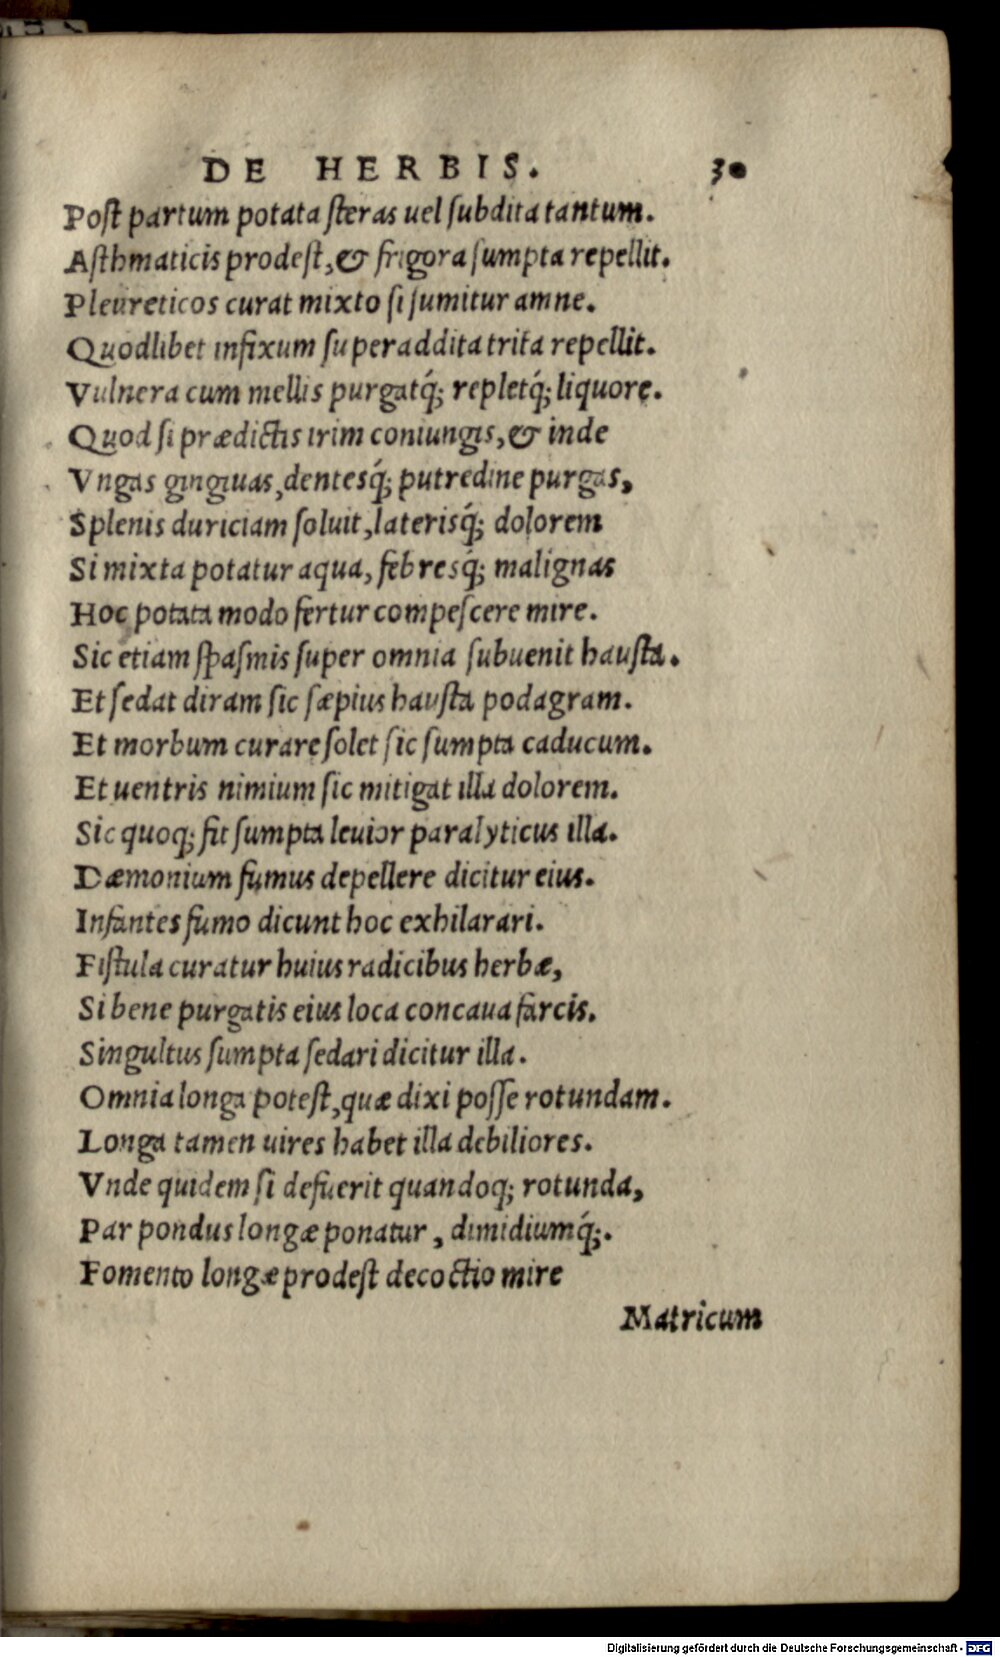 DE HERBIS. 30
Post partum potata steras uel subdita tantum.
Asthmaticis prodest, & frigora sumpta repellit.
Pleureticos curat mixto si sumitur amne.
Quodlibet infixum superaddita trita repellit.
Vulnera cum mellis purgatq́; repletq́; liquore.
Quod si prædictis irim coniungis, & inde
Vngas gingiuas, dentesq́; putredine purgas,
Splenis duriciam soluit, laterisq́; dolorem
Si mixta potatur aqua, febresq́; malignas
Hoc potata modo fertur compescere mire.
Sic etiam spasmis super omnia subuenit hausta.
Et sedat diram sic sæpius hausta podagram.
Et morbum curare solet sic sumpta caducum.
Et uentris nimium sic mitigat illa dolorem.
Sic quoq; fit sumpta leuior paralyticus illa.
Dæmonium fumus depellere dicitur eius.
Infantes fumo dicunt hoc exhilarari.
Fistula curatur huius radicibus herbæ,
Si bene purgatis eius loca concaua farcis.
Singultus sumpta sedari dicitur illa.
Omnia longa potest, quæ dixi posse rotundam.
Longa tamen uires habet illa debiliores.
Vnde quidem si defuerit quandoq; rotunda,
Par pondus longæ ponatur, dimidiumq́;.
Fomento longæ prodest decoctio mire
Matricum
Digitalisierung gefördert durch die Deutsche Forschungsgemeinschaft - DFG